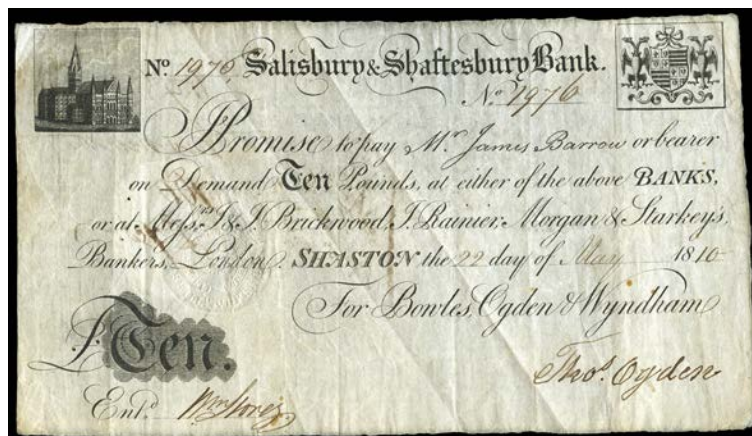 No. 1976 Salisbury & Shaftesbury Bank.
No. 1976
I Promise to pay Mr. James Barrow or bearer
on Demand Ten Pounds, at either of the above BANKS,
or at Messrs. J & J. Brickwood, J. Rainier, Morgan & Starkey's,
Bankers, London. SHASTON the 22 day of May 1810
For Bowles, Ogden & Wyndham
£. Ten.
Thos. Ogden
Entd.